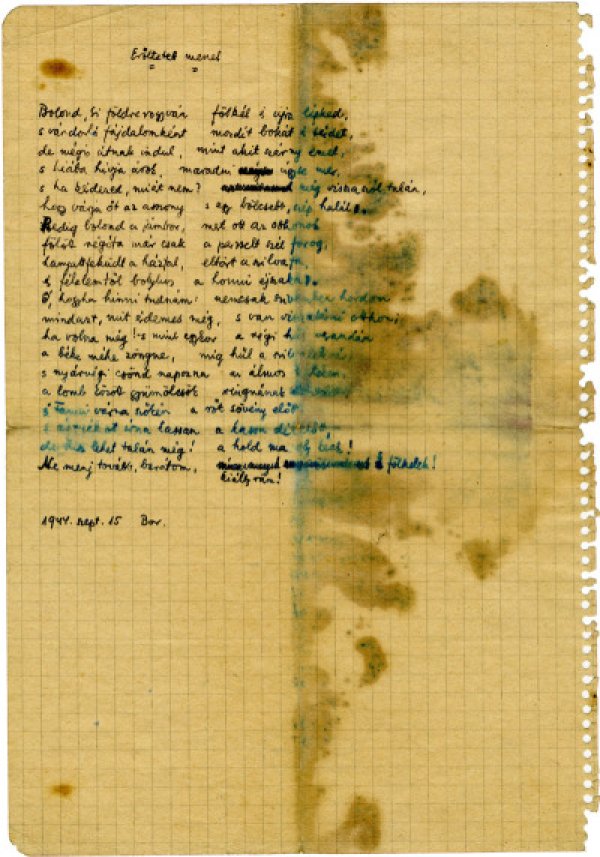 Erőltetett menet
Bolond, ki földre rogyván fölkél és újra lépked,
s vándorló fájdalomként mozdít bokát és térdet,
de mégis útnak indul, mint akit szárny emel,
s hiába hívja árok, maradni úgyse mer,
s ha kérdezed, miért nem? még visszaszól talán,
hogy várja őt az asszony s egy bölcsebb, szép halál.
Pedig bolond a jámbor, mert ott az otthonok
fölött régóta már csak a perzselt szél forog,
hanyattfeküdt a házfal, eltört a szilvafa,
s félelemtől bolyhos a honni éjszaka.
Ó, hogyha hinni tudnám: nemcsak szivemben hordom
mindazt, mit érdemes még, s van visszatérni otthon;
ha volna még! s mint egykor a régi hűs verandán
a béke méhe zöngne, míg hűl a
s nyárvégi csönd napozna az álmos kerteken,
a lomb között gyümölcsök ringnának
s Fanni várna szőkén a rőt sövény előtt,
s árnyékot írna lassan a lassu délelőtt,
de hisz lehet talán még! a hold ma oly kerek!
Ne menj tovább, barátom, kiálts rám! s fölkelek!
1944. szept. 15 Bor.